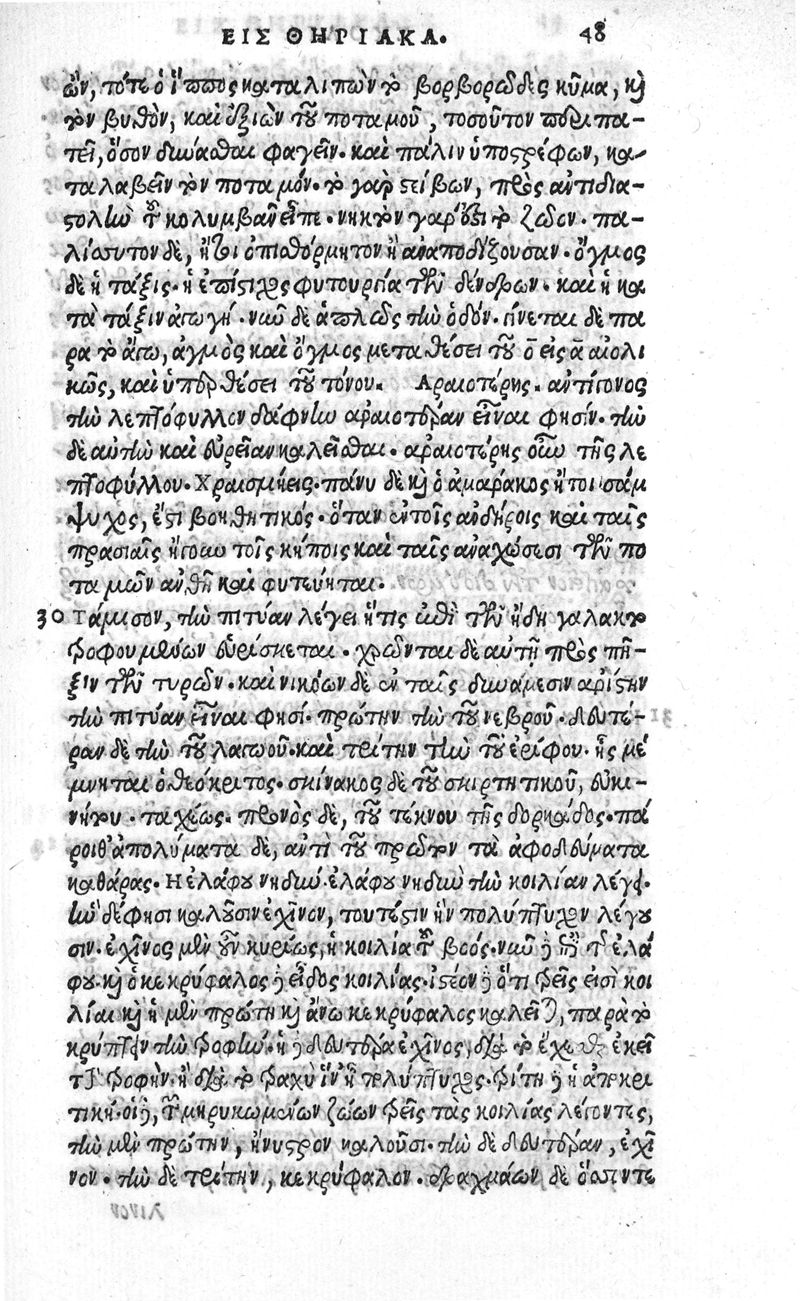 ΕΙΣ ΘΗΡΙΑΚΑ. 48
ὦν, τότε ὁ ἵππος καταλιπὼν τὸ βορβορῶδες κῦμα, καὶ
τὸν βυθὸν, καὶ ἐξιὼν τοῦ ποταμοῦ, τοσοῦτον περιπα-
τεῖ, ὅσον δύναθαι φαγεῖν. καὶ πάλιν ὑποστρέφων, κα-
ταλαβεῖν τὸν ποταμόν. τὸ γὰρ στείβων, πρὸς ἀντιδια-
στολὴν τοῦ κολυμβᾶν εἶπε. νηκτὸν γάρ ἐστι τὸ ζῶον. πα-
λίσσυτον δὲ, ἤτοι ὀπισθόρμητον ἢ ἀναποδίζουσαν. ὄγμος
δὲ ἡ τάξις. ἡ ἐπίστιχος φυτουργία τῶν δένδρων. καὶ ἡ κα
τὰ τάξιν ἀγωγή. νῦν δὲ ἁπλῶς τὴν ὁδόν. γίνεται δὲ πα
ρὰ τὸ ἄγω, ἀγμὸς καὶ ὄγμος μεταθέσει τοῦ ο εἰς α αἰολι
κῶς, καὶ ὑπερθέσει τοῦ τόνου. Αραιοτέρης. ἀντίγονος
τὴν λεπτόφυλλον δάφνην ἀραιοτέραν εἶναι φησίν. τὴν
δὲ αὐτὴν καὶ εὐρεῖαν καλεῖσθαι. ἀραιοτέρης οὖν τῆς λε
πτοφύλλου. Χραισμήεις. πάνυ δὲ καὶ ὁ ἀμάρακος ἤτοι σάμ
ψυχος, ἐστὶ βοηθητικός. ὅταν ἐν τοῖς ἀνδήροις καὶ ταῖς
πρασιαῖς ἤγουν τοῖς κήποις καὶ ταῖς ἀναχώσεσι τῶν πο
ταμῶν ἀνθῇ καὶ φυτεύηται.
30 Τάμισον, τὴν πιτύαν λέγει ἥτις ἀπὸ τῶν ἤδη γαλακτο
τροφουμένων εὑρίσκεται. χρῶνται δὲ αὐτῇ πρὸς πῆ-
ξιν τῶν τυρῶν. καὶ νικρέων δὲ ἐν ταῖς δυνάμεσιν ἀρίστην
τὴν πιτύαν εἶναι φησί. πρώτην τὴν τοῦ νεβροῦ. δευτέ-
ραν δὲ τὴν τοῦ λαγωοῦ. καὶ τρίτην τὴν τοῦ ἐρίφου. ἧς μέ
μνηται ὁ θεόκριτος. σκίνακος δὲ τοῦ σκιρτητικοῦ, εὐκι-
νήτου. ταχέως. προκὸς δὲ, τοῦ τέκνου τῆς δορκάδος. πά
ροιθ' ἀπολύματα δὲ, ἀντὶ τοῦ πρῶτον τὰ ἀφοδεύματα
καθάρας. Η ἐλάφου νηδύν. ἐλάφου νηδὺν τὴν κοιλίαν λέγει.
ἣν δέ φησι καλοῦσιν ἐχῖνον, τουτέστιν ἣν πολύπτυχον λέγου
σιν. ἐχῖνος μὲν οὖν κυρίως, ἡ κοιλία τοῦ βοός. νῦν δὲ ἐπὶ τῆς ἐλά
φου. καὶ ὁ κεκρύφαλος δὲ εἶδος κοιλίας. ἰστέον δὲ ὅτι τρεῖς εἰσὶ κοι
λίαι καὶ ἡ μὲν πρώτη καὶ ἄνω κεκρύφαλος καλεῖται, παρὰ τὸ
κρύπτειν τὴν τροφήν. ἡ δὲ δευτέρα ἐχῖνος, διὰ τὸ ἔχεσθαι ἐκεῖ
τὴν τροφὴν. ἢ διὰ τὸ τραχύ ἵν' ᾖ πολύπτυχος. τρίτη δὲ ἡ ἀποκρι
τική. οἱ δὲ, τῶν μηρυκωμένων ζώων τρεῖς τὰς κοιλίας λέγοντες,
τὴν μὲν πρώτην, ἤνυστρον καλοῦσι. τὴν δὲ δευτέραν, ἐχῖ
νον. τὴν δὲ τρίτην, κεκρύφαλον. δραχμάων δὲ ὅσιν τε